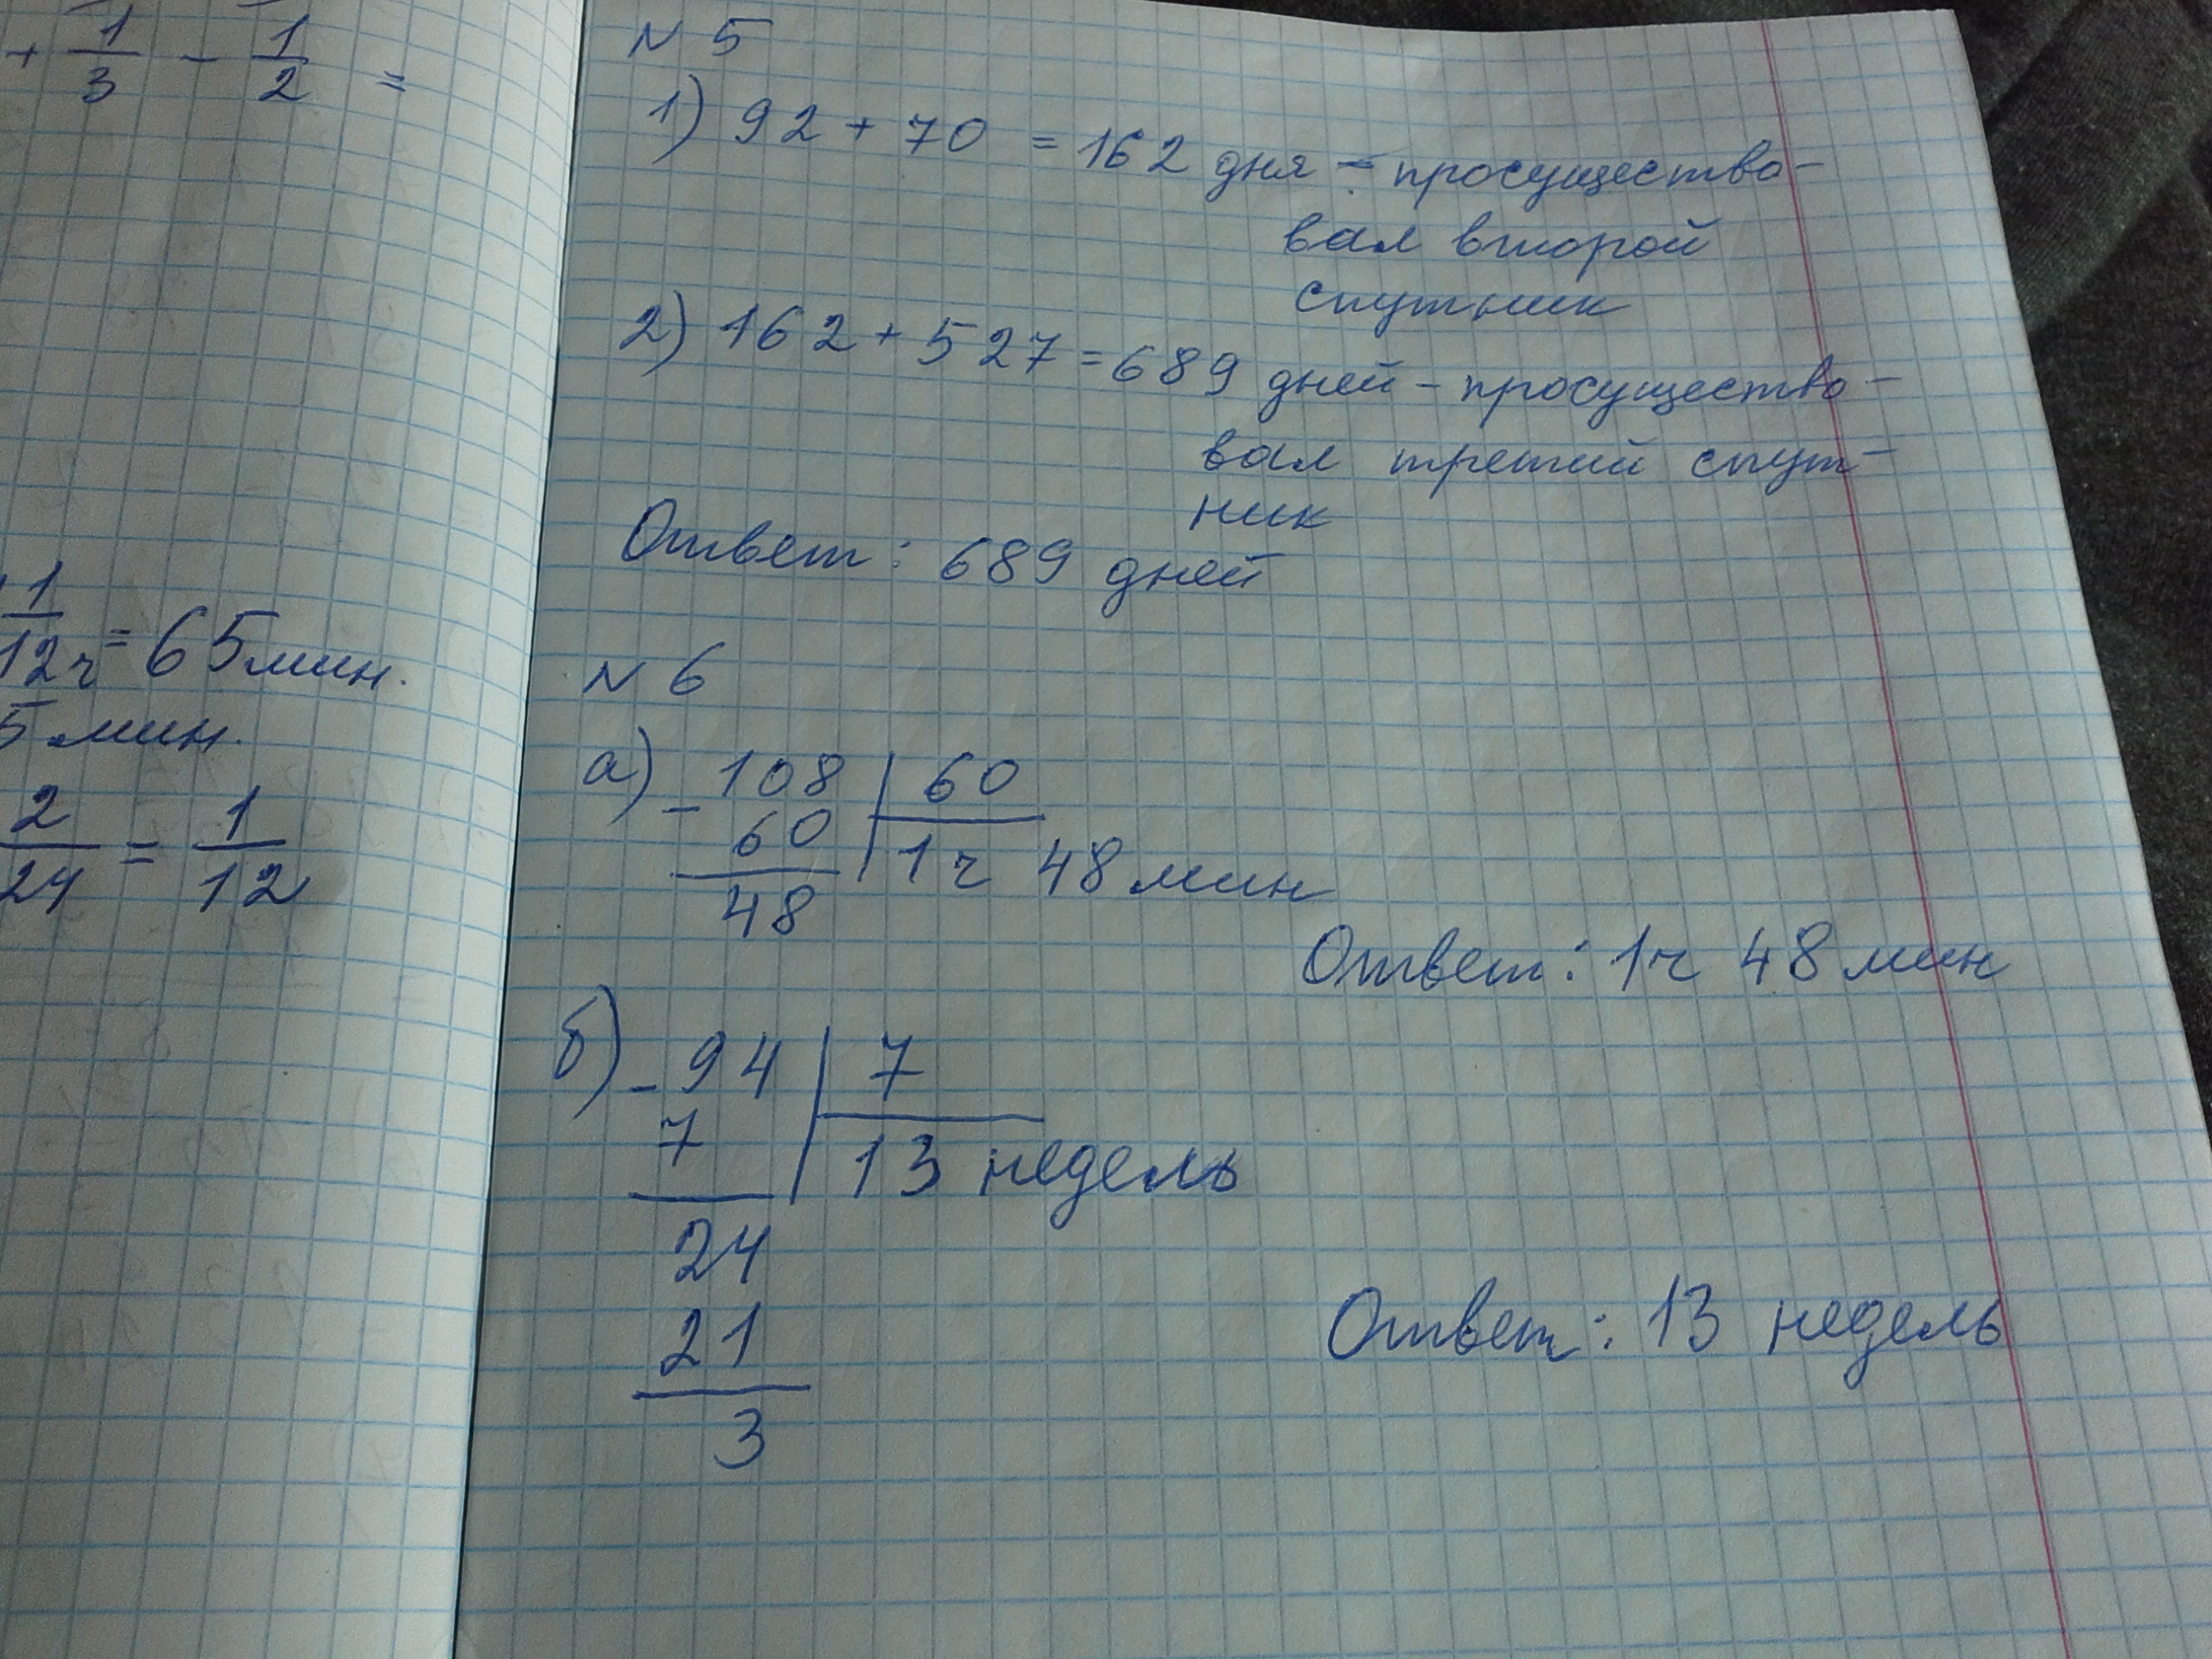 + 1/3 - 1/2 =
1/12 ч = 65 мин.
5 мин.
2/24 = 1/12
N 5
1) 92 + 70 = 162 дня - просущество-
вал второй
спутник
2) 162 + 527 = 689 дней - просущество-
вал третий спут-
ник
Ответ: 689 дней
N 6
а) - 108 | 60
60 | 1 ч 48 мин
48
Ответ: 1 ч 48 мин
б) - 94 | 7
7 | 13 недель
24
21
3
Ответ: 13 недель